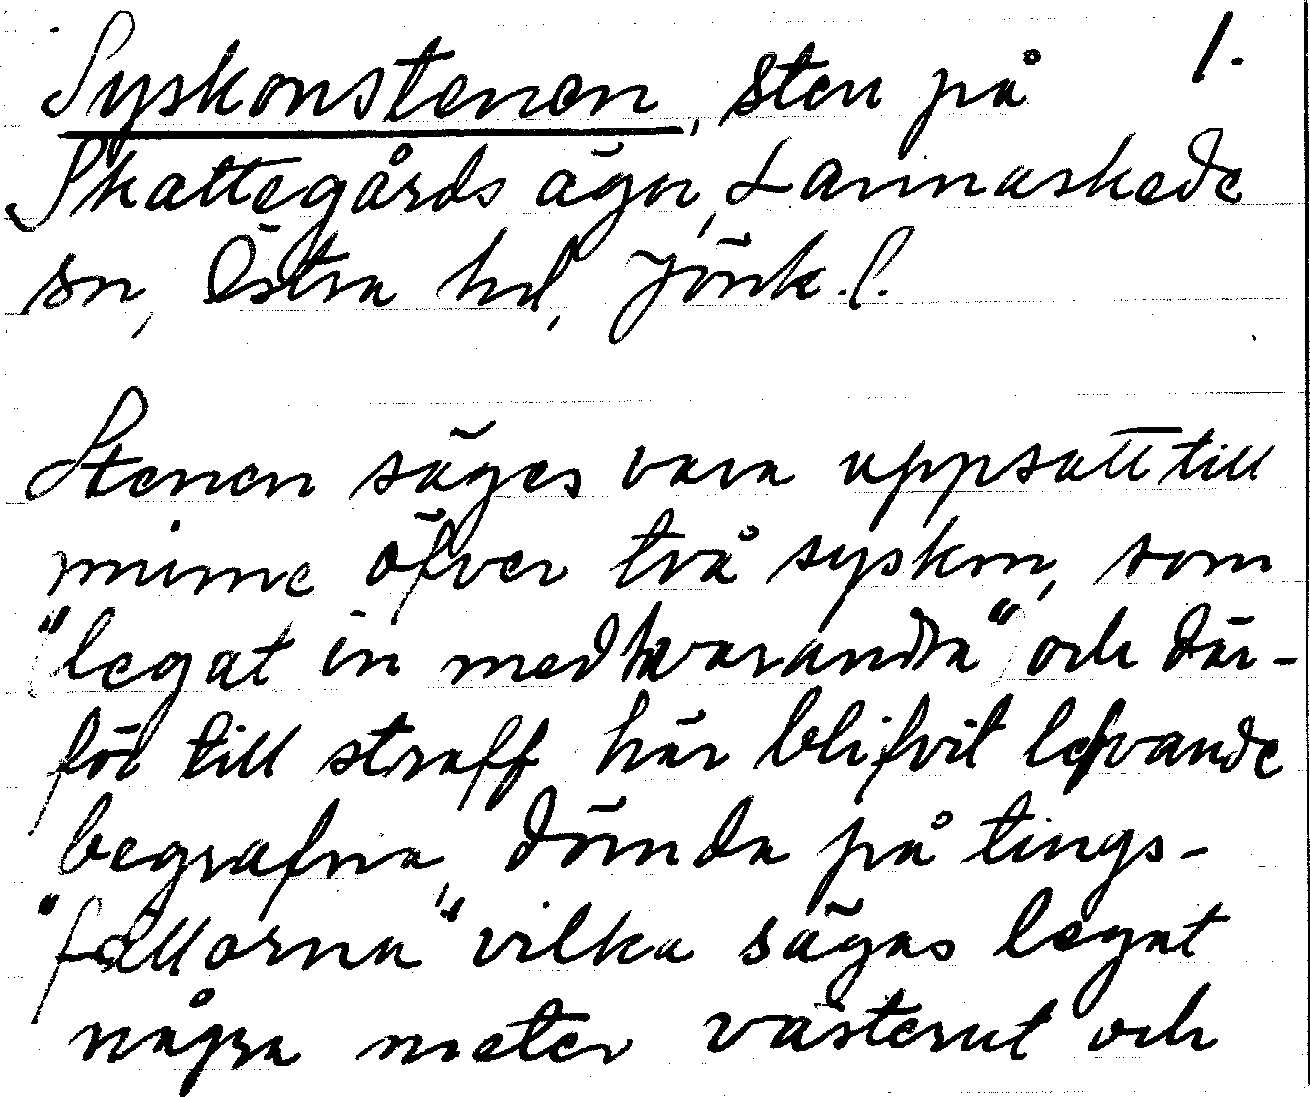 1.
Syskonstenen, sten på
Skattegårds ägor, Lannaskede
sn, Östra hd, Jönk. l.
Stenen säges vara uppsatt till
minne öfver två syskon, som
"legat in med hvarandra" och där-
för till straff här blifvit lefvande
begrafna, dömda på tings-
"fällorna" vilka sägas legat
några meter västerut och